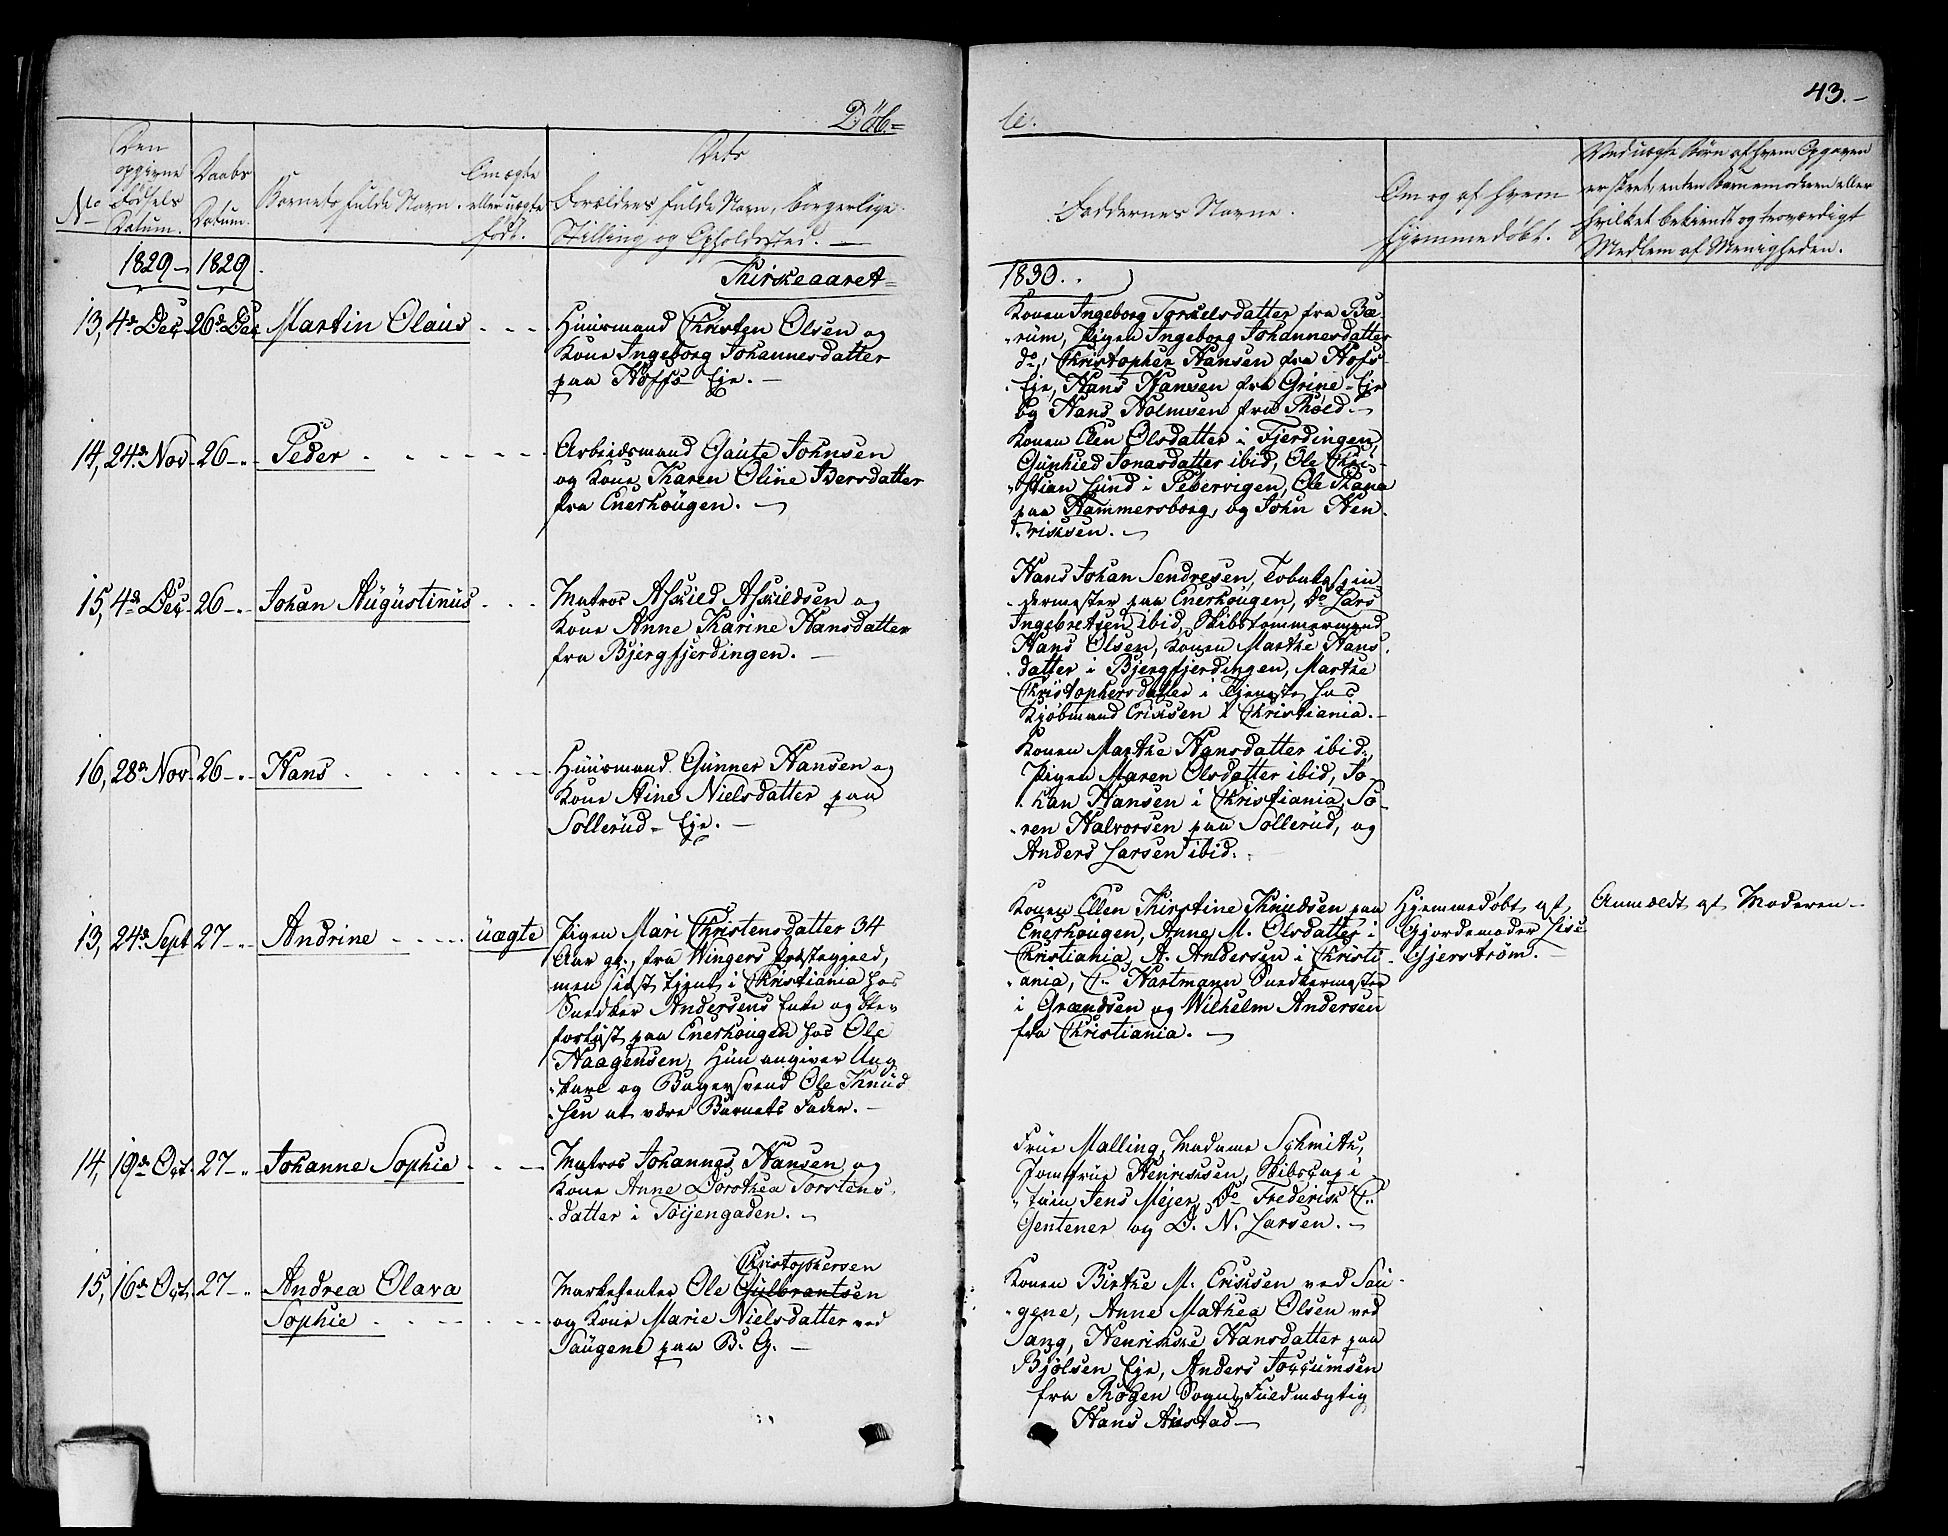 Döb-
te.
43.-
No
Den opgivne Fødsels Datum.
Daabs Datum.
Barnets fulde Navn.
Om ægte eller uægte født.
Dets Forældres fulde Navn, borgerlige Stilling og Opholdssted.
Faddernes Navne.
Om og af hvem hjemmedøbt.
Ved uægte Børn af hvem Opgaven er skeet, enten Barnemoderen eller hvilket bekiendt og troværdigt Medlem af Menigheden.
1829 - 1829
Kirkeaaret =
1830.
13, 4de Dec 26de Dec Martin Olaus
Huusmand Christen Olsen og
Kone Ingeborg Johannesdatter
paa Hoffs Eje. -
Konen Ingeborg Torkelsdatter fra Bæ-
rum, Pigen Ingeborg Johannesdatter
do, Christopher Hansen fra Hofs-
Eje, Hans Hansen fra Grine-Eje
og Hans Holmsen fra
14, 24de Nov 26 -.- Peder
Arbeidsmand Gaute Johnsen
og Kone Karen Oline Iversdatter
fra Enerhougen. -
Konen Elen Olsdatter i Fjerdingen,
Gunhied Jonasdatter ibid, Ole Chri-
stian Lund i Pebervigen, Ole
paa Hammersborg, og John Hen-
riksen. -
15, 4de Dec 26 -.- Johan Augustinus
Matros Askild Askildsen og
Kone Anne Karine Hansdatter
fra Bjergfjerdingen. -
Hans Johan Sendresen, Tobaksspin-
dermester paa Enerhougen, Do Lars
Ingebretsen ibid, Skibstømmermand
Hans Olsen, Konen Marthe Hans-
datter i Bjergfjerdingen, Marthe
Christophersdatter i Tjeneste hos
Kjøbmand Ericksen i Christiania. -
16, 28de Nov 26 -.- Hans
Huusmand Gunner Hansen og
Kone Aine Nielsdatter paa
Sollerud - Eje. -
Konen Marthe Hansdatter ibid,
Pigen Maren Olsdatter ibid, Jo-
han Hansen i Christiania, Sø-
ren Halvorsen paa Sollerud, og
Anders Larsen ibid.
13, 24de Sept 27 -.- Andrine uægte
Pigen Mari Christensdatter 34
Aar gl., fra Wingers Præstegjeld,
men sidst tjent i Christiania hos
Snedker Andersens Enke og
paa Enerhougen hos Ole
Haagensen, Hun angiver Ung-
karl og Bagersvend Ole Knud
sen at være Barnets Fader. -
Konen Ellen Kirstine Knudsen paa
Enerhougen, Anne M. Olsdatter i
Christiania, A. Andersen i Christi-
ania, C. Hartmann Snedkermester
i Grændsen og Wilhelm Andersen
fra Christiania. -
Hjemmedøbt af
Gjordemoder Lise
Gjerstrøm. -
Anmeldt af Moderen -
14, 19de Oct. 27 -.- Johanne Sophie
Matros Johannes Hansen og
Kone Anne Dorothea Torstens-
datter i Töijengaden. -
Frue Malling, Madame Schmith,
Jomfrue Henriksen, Skibscapi-
tain Jens Mejer, Do Frederik C.
Gentener og D. N. Larsen. -
15, 16de Oct. 27 -.- Andrea Olava
Sophie
Christophersen
Markefenter Ole Gulbrantsen
og Kone Marie Nielsdatter ved
Saugene paa B. G. -
Konen Birthe M. Ericksen ved Sau-
gene, Anne Mathea Olsen ved
Sang, Henrikke Hansdatter paa
Bjølsen Eje, Anders Joccumsen
fra Røgen Sogn, Fuldmægtig
Hans Austad -